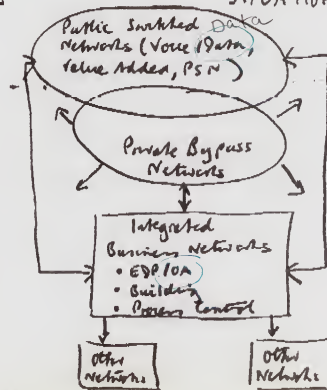 Data
Public Switched
Networks (Voice / Data,
Value Added, PSN)
Private Bypass
Networks
Integrated
Business Networks
• EDP/OA
• Building
• Process Control
Other
Networks
Other
Networks